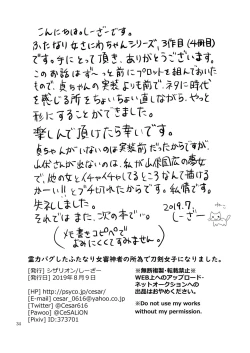 こんにちは。しーざーです。
ふたなり女さにわちゃんシリーズ、3作目(4冊目)
です。手にとって頂き、ありがとうございます。
このお話はず〜っと前にプロットを組んでおいた
もので、貞ちゃんの実装よりも前で、ネタに時代
を感じる所をちょいちょい直しながら、やっと
形にすることができました。
楽しんで頂けたら幸いです。
貞ちゃんがいないのは実装前だったからですが、
山伏さんが出ないのは、私が山伏国広の夢女
で、他の女とイチャイチャしてるところなんて描ける
かーい!!とブチ切れたからです。私情です。
失礼しました。
それではまた、次の本で…。
2019.7.
しーざー
(メモ書きコピペで
よみにくくてすみません。)
霊力バグしたふたなり女審神者の所為で刀剣女子になりました。
[発行] シザリオン/しーざー
[発行日] 2019年8月9日
[HP] http://psyco.jp/cesar/
[E-mail] cesar_0616@yahoo.co.jp
[Twitter] @Cesar616
[Pawoo] @CeSALiON
[Pixiv] ID:373701
※無断複製・転載禁止※
WEB上へのアップロード・
ネットオークションへの
出品はおやめください。
※Do not use my works
without my permission.
34